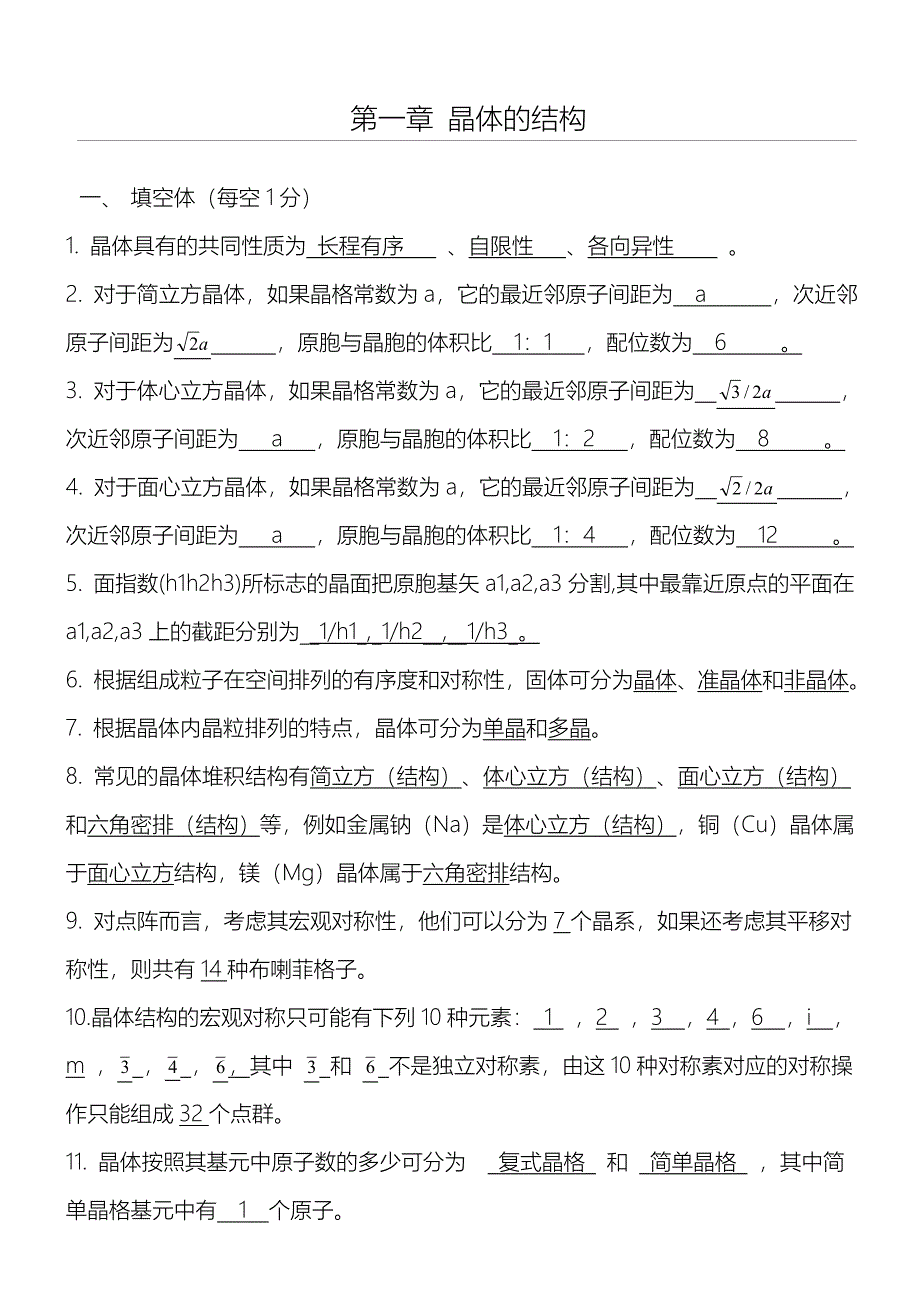 第一章 晶体的结构
一、 填空体（每空1分）
1. 晶体具有的共同性质为 长程有序 、自限性 、各向异性 。
2. 对于简立方晶体，如果晶格常数为a，它的最近邻原子间距为 a ，次近邻
原子间距为√2a ，原胞与晶胞的体积比 1：1 ，配位数为 6 。
3. 对于体心立方晶体，如果晶格常数为a，它的最近邻原子间距为 √3/2a ，
次近邻原子间距为 a ，原胞与晶胞的体积比 1：2 ，配位数为 8 。
4. 对于面心立方晶体，如果晶格常数为a，它的最近邻原子间距为 √2/2a ，
次近邻原子间距为 a ，原胞与晶胞的体积比 1：4 ，配位数为 12 。
5. 面指数(h1h2h3)所标志的晶面把原胞基矢a1,a2,a3分割,其中最靠近原点的平面在
a1,a2,a3上的截距分别为 1/h1 , 1/h2 , 1/h3 。
6. 根据组成粒子在空间排列的有序度和对称性，固体可分为晶体、准晶体和非晶体。
7. 根据晶体内晶粒排列的特点，晶体可分为单晶和多晶。
8. 常见的晶体堆积结构有简立方（结构）、体心立方（结构）、面心立方（结构）
和六角密排（结构）等，例如金属钠（Na）是体心立方（结构），铜（Cu）晶体属
于面心立方结构，镁（Mg）晶体属于六角密排结构。
9. 对点阵而言，考虑其宏观对称性，他们可以分为7个晶系，如果还考虑其平移对
称性，则共有14种布喇菲格子。
10.晶体结构的宏观对称只可能有下列10种元素： 1 ，2 ，3 ，4 ，6 ，i ，
m ，3̅ ，4̅ ，6̅ ，其中 3̅ 和 6̅ 不是独立对称素，由这10种对称素对应的对称操
作只能组成32个点群。
11. 晶体按照其基元中原子数的多少可分为 复式晶格 和 简单晶格 ，其中简
单晶格基元中有 1 个原子。